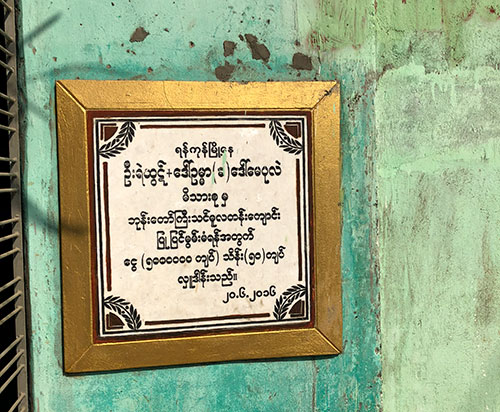 ရန်ကုန်မြို့နေ
ဦးရဲထွဋ်+ဒေါ်ဥမ္မာ(ခ)ဒေါ်မေပုလဲ
မိသားစု မှ
ဘုန်းတော်ကြီးသင်မူလတန်းကျောင်း
ပြုပြင်စွမ်းမံရန်အတွက်
ငွေ (၅၀၀၀၀၀၀ ကျပ်) သိန်း(၅၀)ကျပ်
လှူဒါန်းသည်။
၂၀.၆.၂၀၁၆